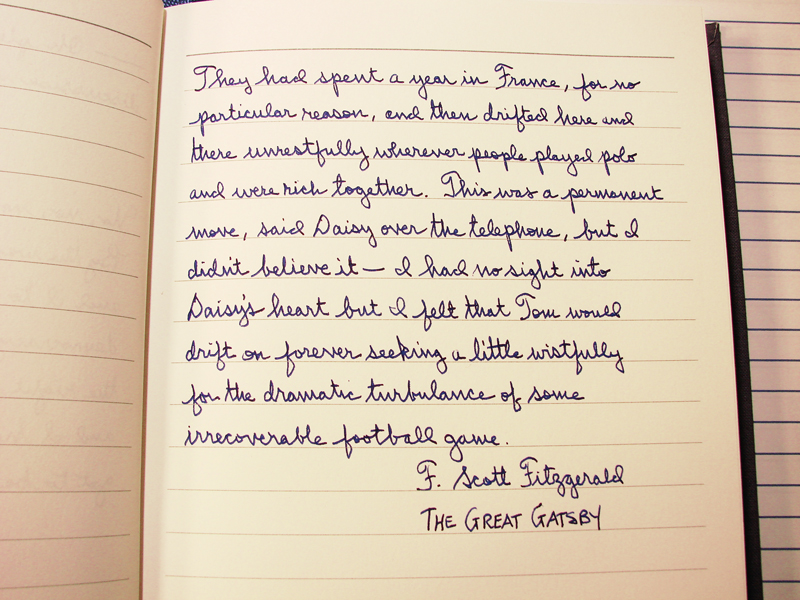 They had spent a year in France, for no
particular reason, and then drifted here and
there unrestfully wherever people played polo
and were rich together. This was a permanent
move, said Daisy over the telephone, but I
didn't believe it — I had no sight into
Daisy's heart but I felt that Tom would
drift on forever seeking a little wistfully
for the dramatic turbulance of some
irrecoverable football game.
F. Scott Fitzgerald
THE GREAT GATSBY